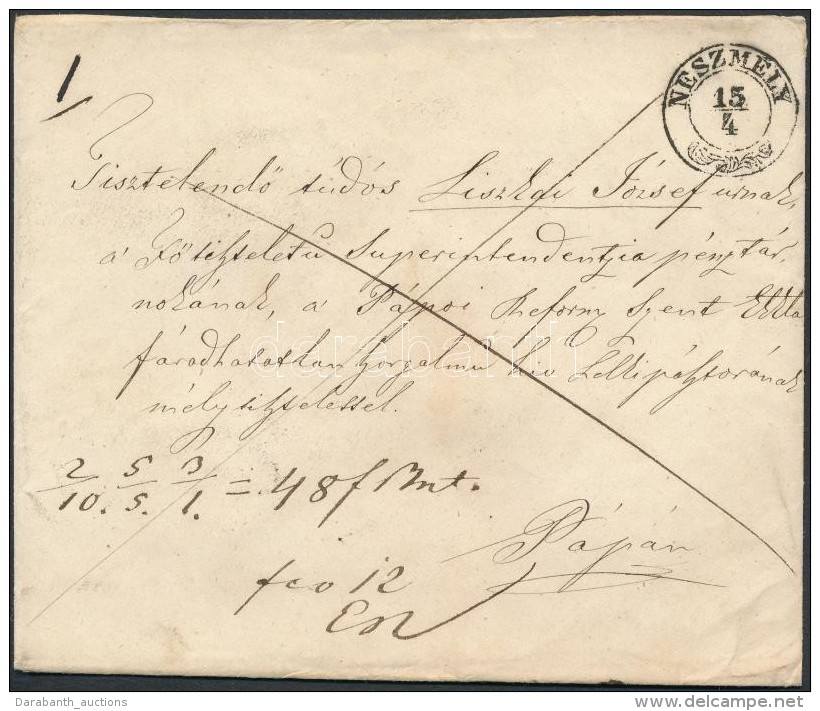 1
NESZMÉLY
15
4
Tisztelendő túdós Liszkai József urnak,
a Főtiszteletű Superintendentzia pénztár,
nokának, a Pápai Reform Szent Ekkla
fáradhatatlan szorgalmu hiv Lelkipásztorának
mély tisztelettel.
2/10. 5/5. 3/1. = 48 f Mnt.
Pápán
fco 12
darabanth
Darabanth_auctions
www.delcampe.net